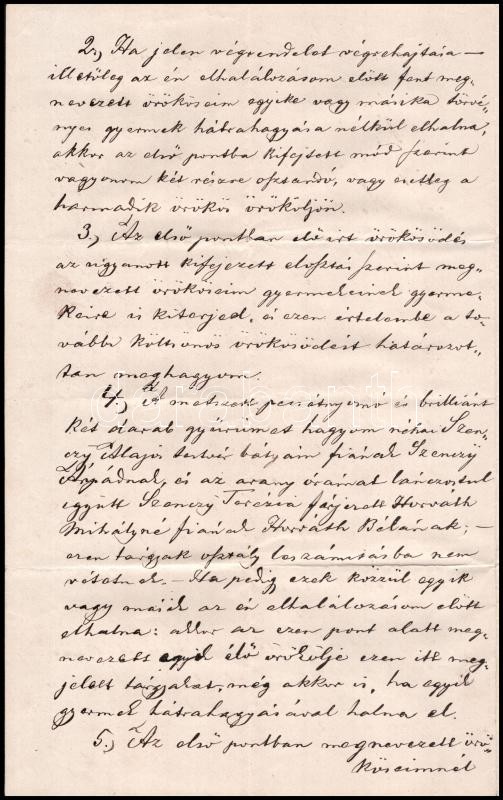 2., Ha jelen végrendelet végrehajtása —
illetőleg az én elhalálozásom előtt fent meg-
nevezett örököseim egyike vagy másika törvé-
nyes gyermek hátrahagyása nélkül elhalna,
akkor az első pontba kifejtett mód szerint
vagyonom két részre osztandó, vagy esetleg a
harmadik örökös örököljön.
3., Az első pontban előirt örökösödés
az ugyanott kifejezett elosztás szerint meg-
nevezett örököseim gyermekeinek gyerme-
keire is kiterjed, és ezen értelembe a to-
vábbi kölcsönös örökösödést határozot-
tan meghagyom.
4., A metszett pecsétnyomó és brilliánt
két darab gyürümet hagyom néhai Szen-
czy Alajos testvér bátyám fiának Szenczy
Árpádnak, és az arany órámat lánczostul
együtt Szenczy Terézia férjezett Horváth
Mihályné fiának Horváth Bélának; —
ezen tárgyak osztály beszámitásba nem
vétetnek. — Ha pedig ezek közzül egyik
vagy másik az én elhalálozásom előtt
elhalna: akkor az ezen pont alatt meg-
nevezett egyik élő örökölje ezen itt meg-
jelelt tárgyakat, még akkor is, ha egyik
gyermek hátrahagyásával halna el.
5., Az első pontban megnevezett örö-
köseimnél
darabanth